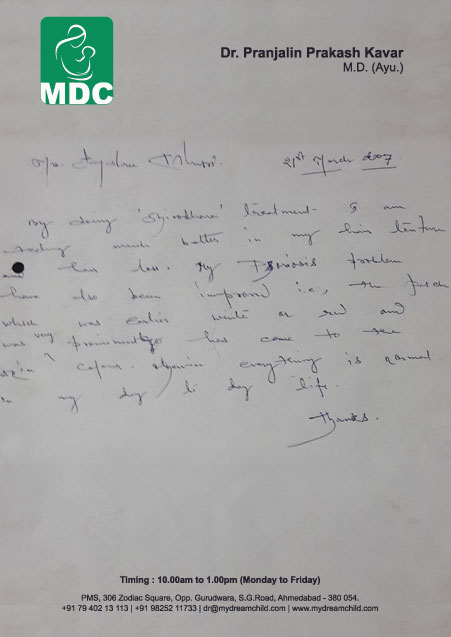 MDC
Dr. Pranjalin Prakash Kavar
M.D. (Ayu.)
21st March 2007.
By doing 'Shirodhara' treatment I am
feeling much better in my hair texture
and hair loss. My Psoriosis problem
have also been improved i.e., the patch
which was earlier white or red and
was very prominent has come to the
skin colour. Otherwise everything is normal
in my day to day life.
Thanks.
Timing : 10.00am to 1.00pm (Monday to Friday)
PMS, 306 Zodiac Square, Opp. Gurudwara, S.G.Road, Ahmedabad - 380 054.
+91 79 402 13 113 | +91 98252 11733 | dr@mydreamchild.com | www.mydreamchild.com